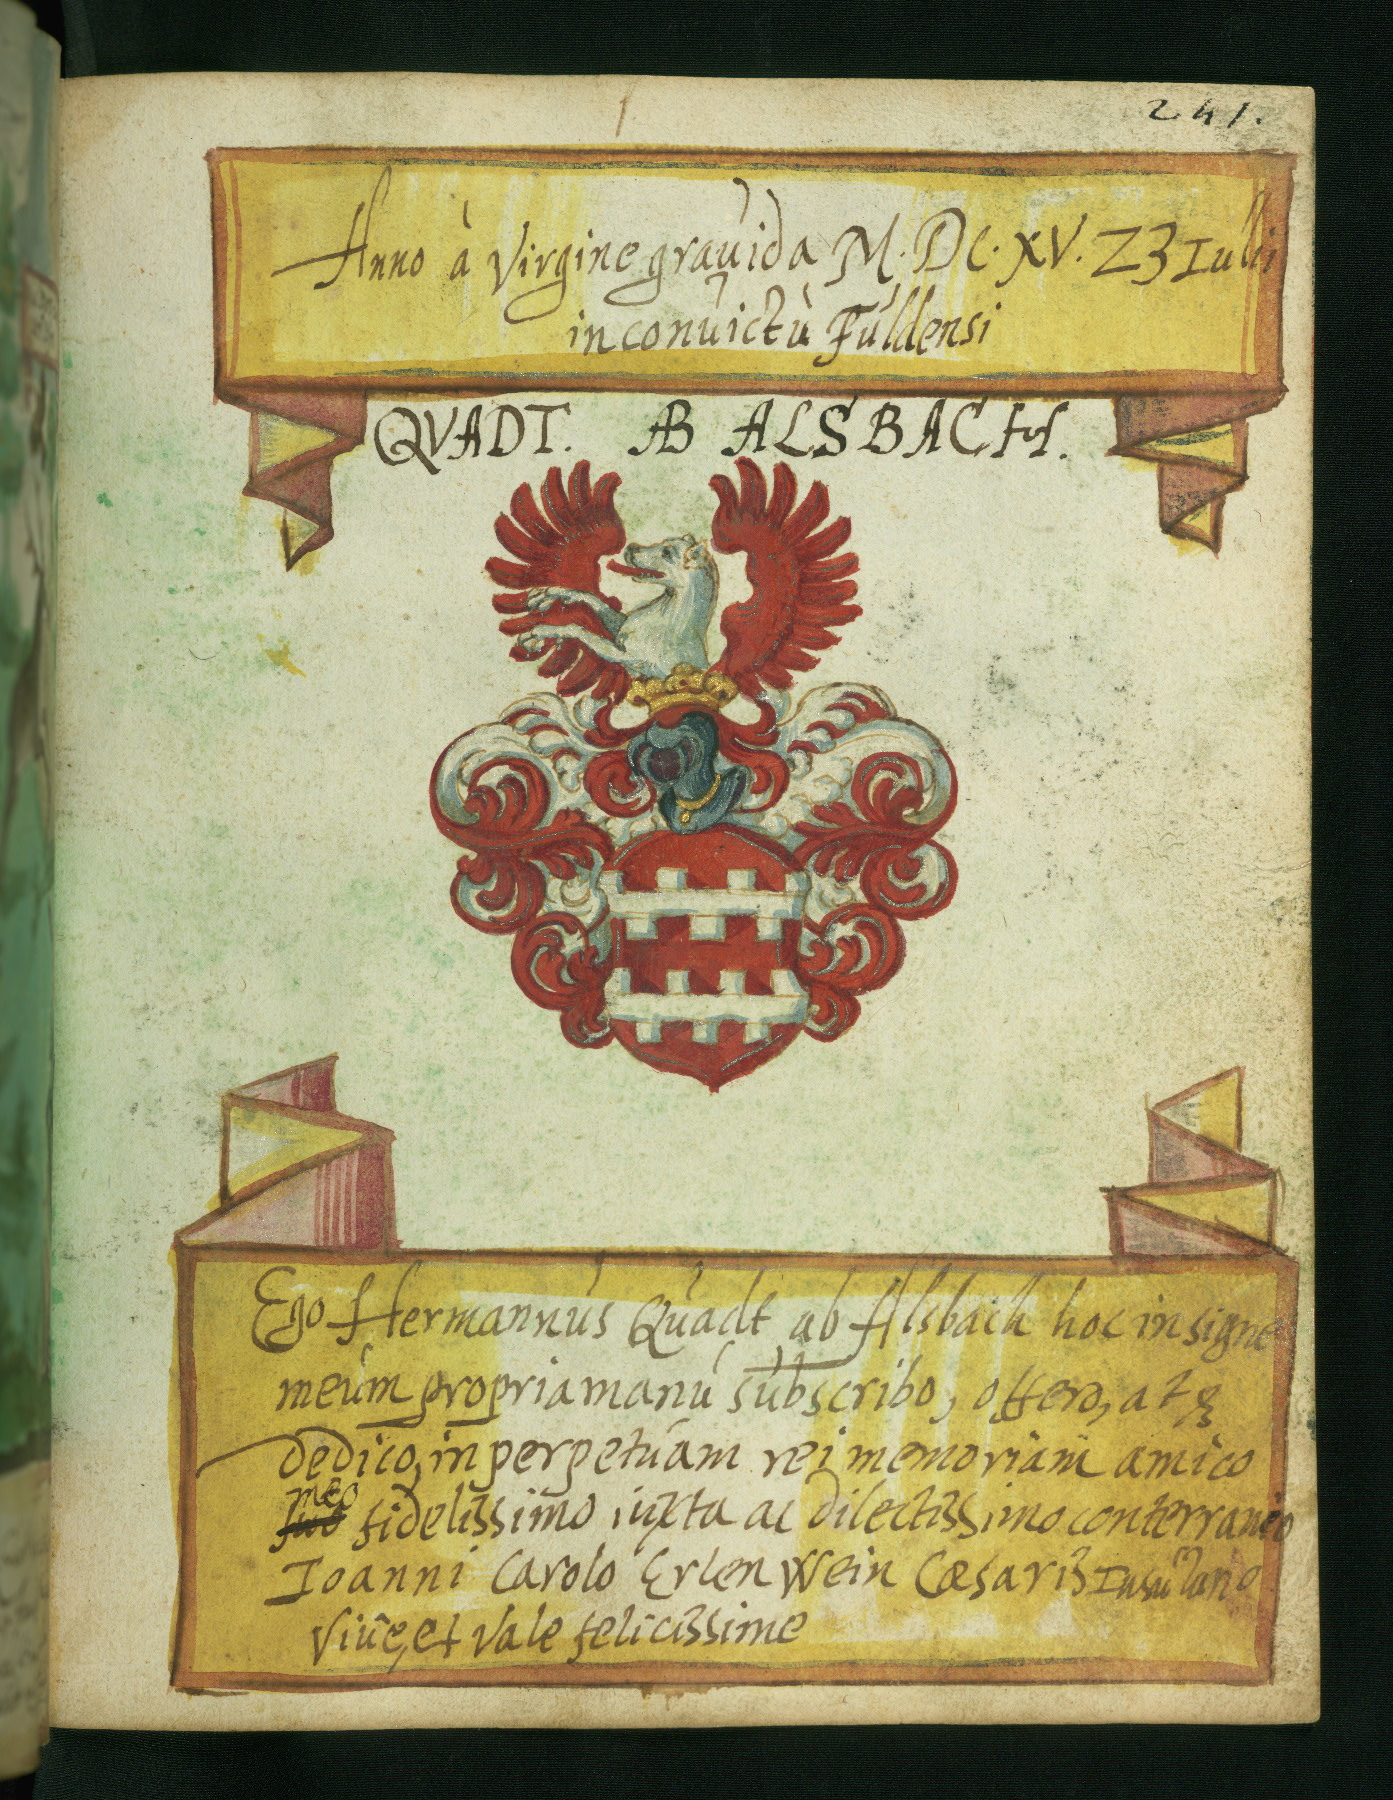 241.
Anno à Virgine grauida M. DC. XV. Z3 Iulii
in conuictu Fuldensi
QVADT. AB ALSBACH.
Ego Hermannus Quadt ab Alsbach hoc insigne
meum propria manu subscribo, offero, atq
dedico, in perpetuam rei memoriam amico
meo
suo fidelissimo iuxta ac dilectissimo conterraneo
Ioanni Carolo Erlenwein Cæsaris Insulano
Viue, et Vale felicissime